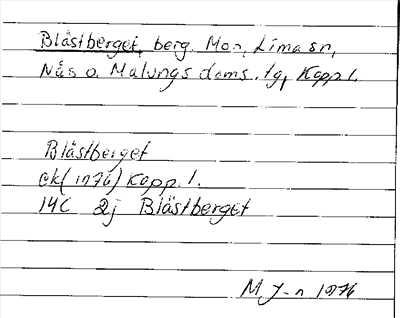 Blåstberget, berg, Mon, Lima sn,
Nås o. Malungs doms. lg, Kopp l.
Blåstberget
ek (1976) Kopp. l.
14C 2j Blåstberget
M J-n 1976